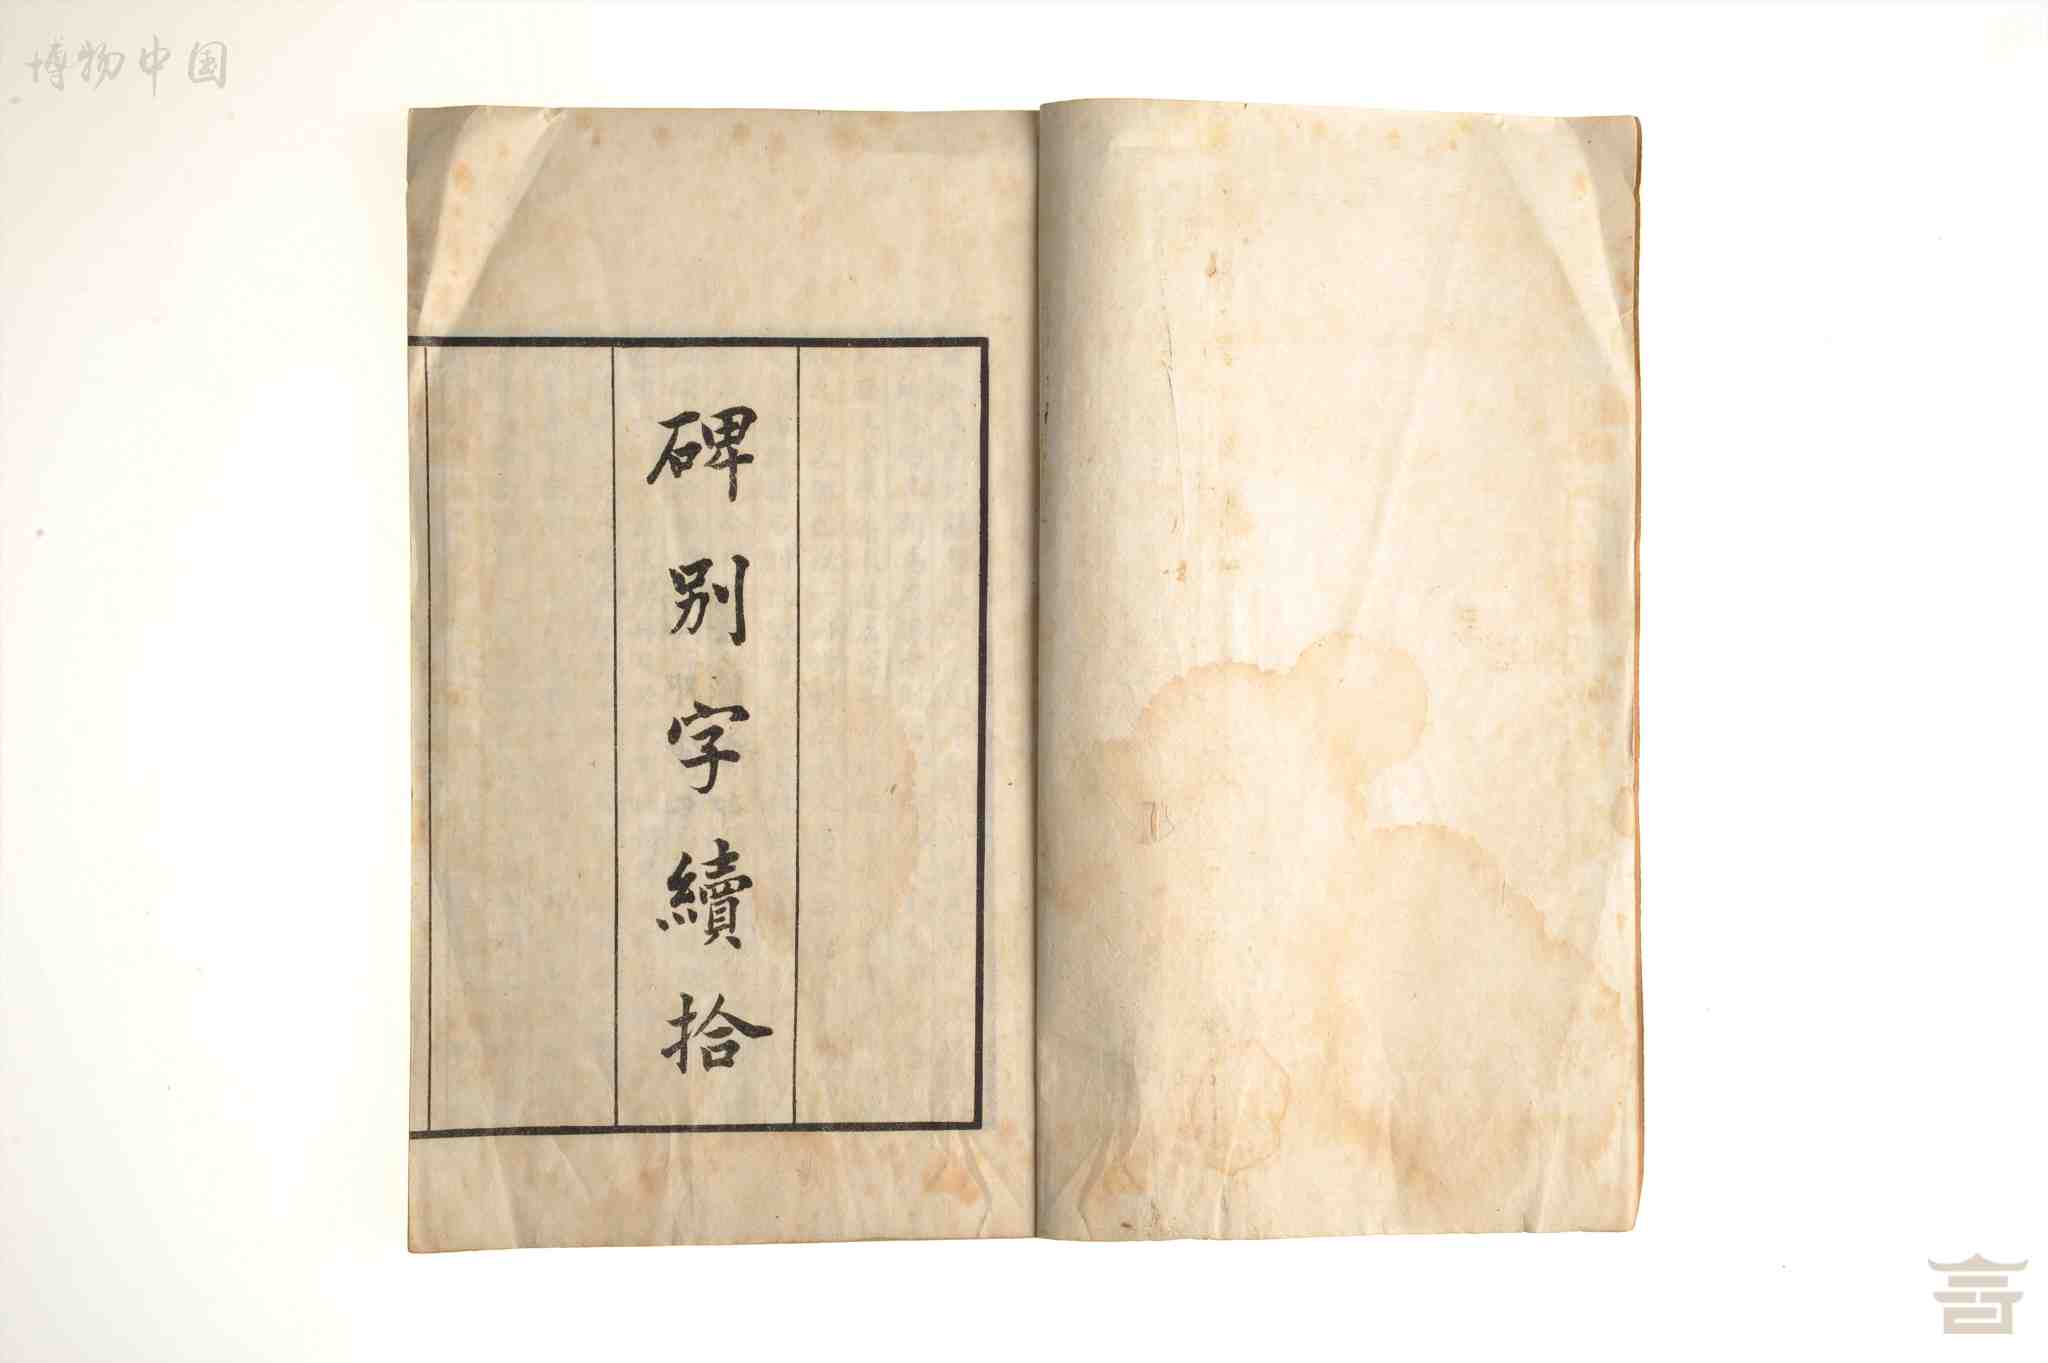 博物中国
碑别字續拾